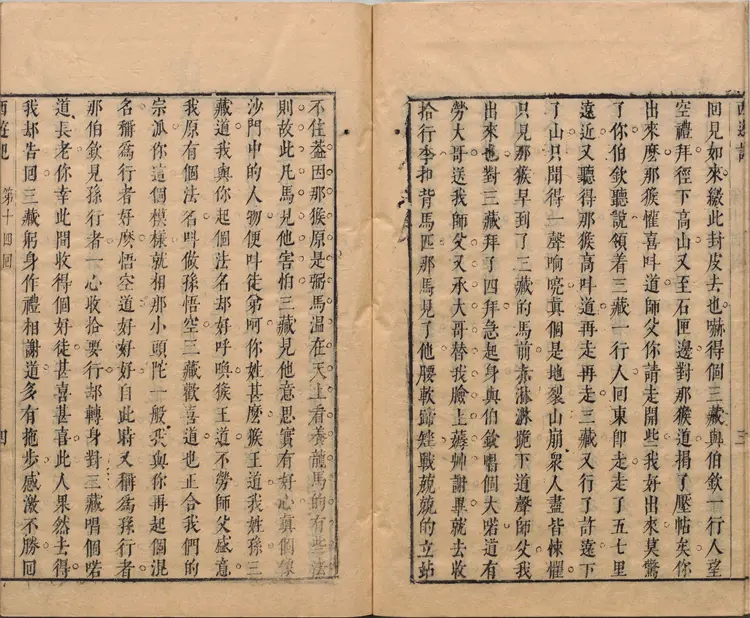 回見如來繳此封皮去也嚇得個三藏與伯欽一行人望
空禮拜徑下高山又至石匣邊對那猴道揭了壓帖矣你
出來麽那猴懽喜呌道師父你請走開些我好出來莫驚
了你伯欽聽說領着三藏一行人回東卽走走了五七里
遠近又聽得那猴高呌道再走再走三藏又行了許遠下
了山只聞得一聲响喨眞個是地裂山崩衆人盡皆悚懼
只見那猴早到了三藏的馬前赤淋淋跪下道聲師父我
出來也對三藏拜了四拜急起身與伯欽唱個大喏道有
勞大哥送我師父又承大哥替我臉上薅艸謝畢就去收
拾行李扣背馬匹那馬見了他腰軟蹄矬戰兢兢的立站
不住蓋因那猴原是弼馬溫在天上看養龍馬的有些法
則故此凡馬見他害怕三藏見他意思實有好心眞個像
沙門中的人物便呌徒弟呵你姓甚麽猴王道我姓孫三
藏道我與你起個法名却好呼喚猴王道不勞師父盛意
我原有個法名呌做孫悟空三藏歡喜道也正合我們的
宗派你這個模樣就相那小頭陀一般我與你再起個混
名稱爲行者好麽悟空道好好好自此時又稱爲孫行者
那伯欽見孫行者一心收拾要行却轉身對三藏唱個喏
道長老你幸此間收得個好徒甚喜甚喜此人果然去得
我却告回三藏躬身作禮相謝道多有拖步感激不勝回
西遊記 第十四回 四